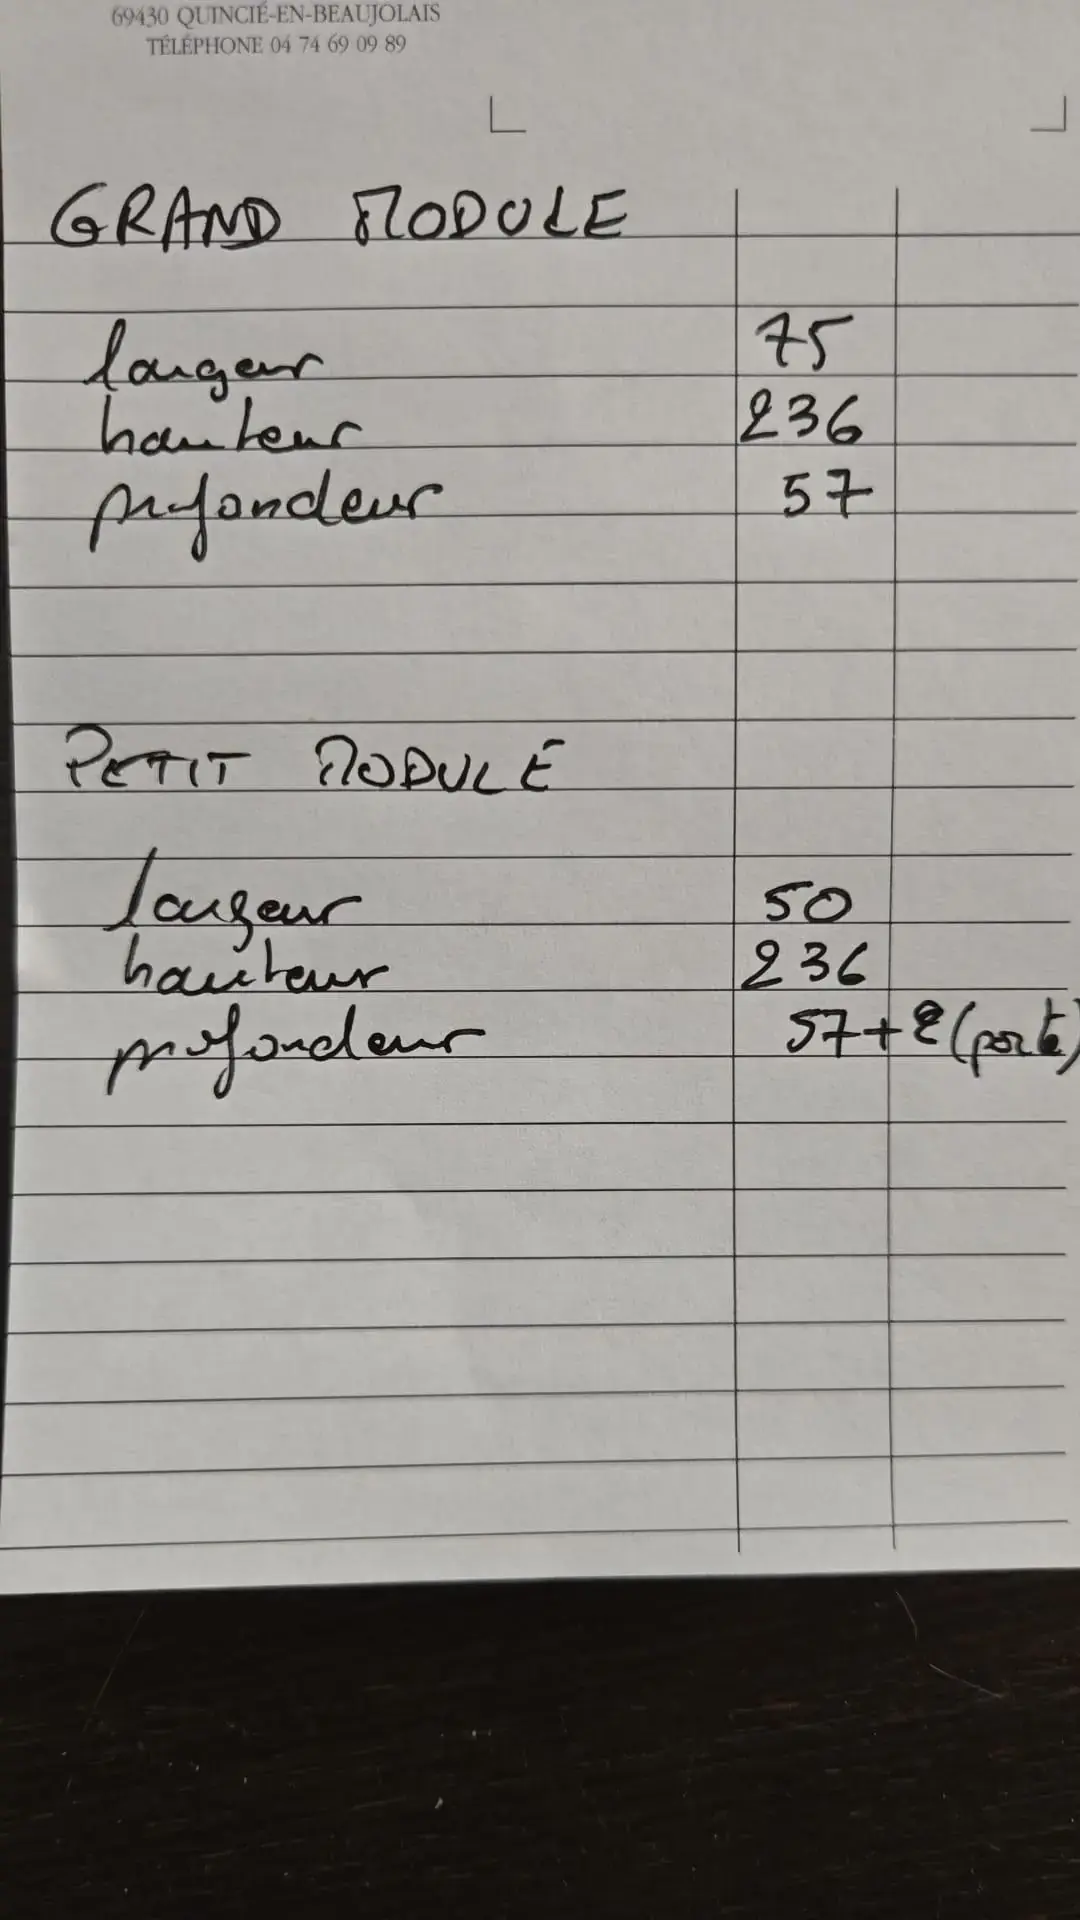 69430 QUINCIÉ-EN-BEAUJOLAIS
TÉLÉPHONE 04 74 69 09 89
GRAND MODULE
largeur 75
hauteur 236
profondeur 57
PETIT MODULE
largeur 50
hauteur 236
profondeur 57+2 (porte)